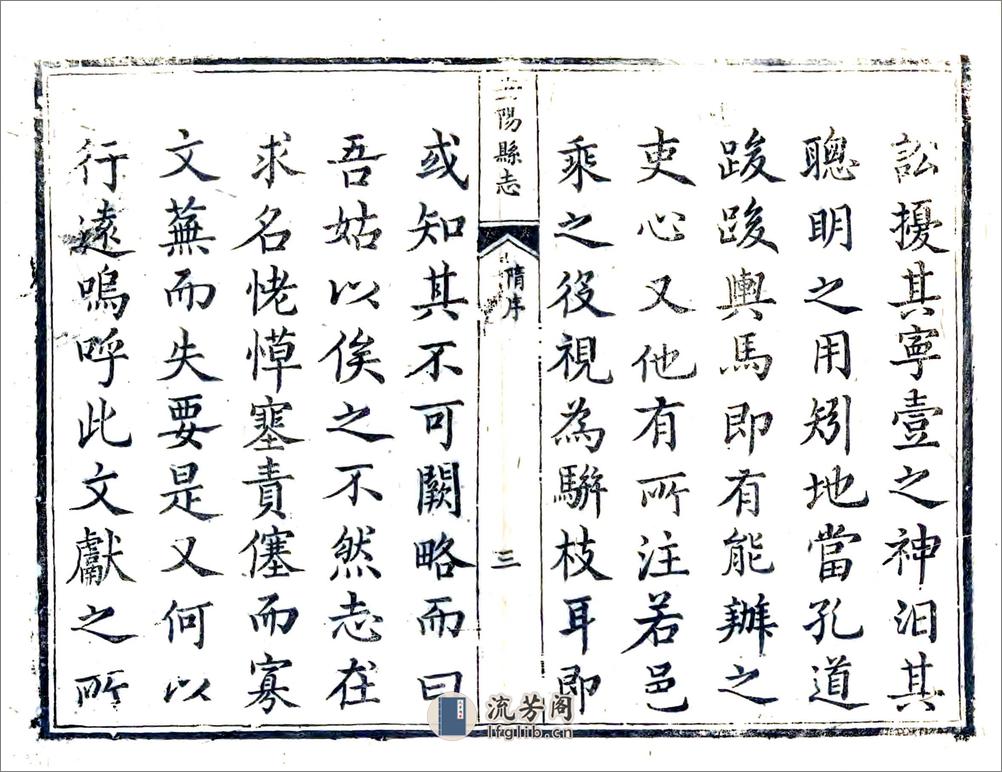 訟擾其寜壹之神汩其
聰明之用矧地當孔道
踆踆輿馬即有能辦之
吏心又他有所注若邑
乘之役視為駢枝耳即
陽縣志
隋序
三
或知其不可闕略而曰
吾姑以俟之不然志在
求名恅愺塞責僿而寡
文蕪而失要是又何以
行遠嗚呼此文獻之所
流芳阁
lfglib.cn